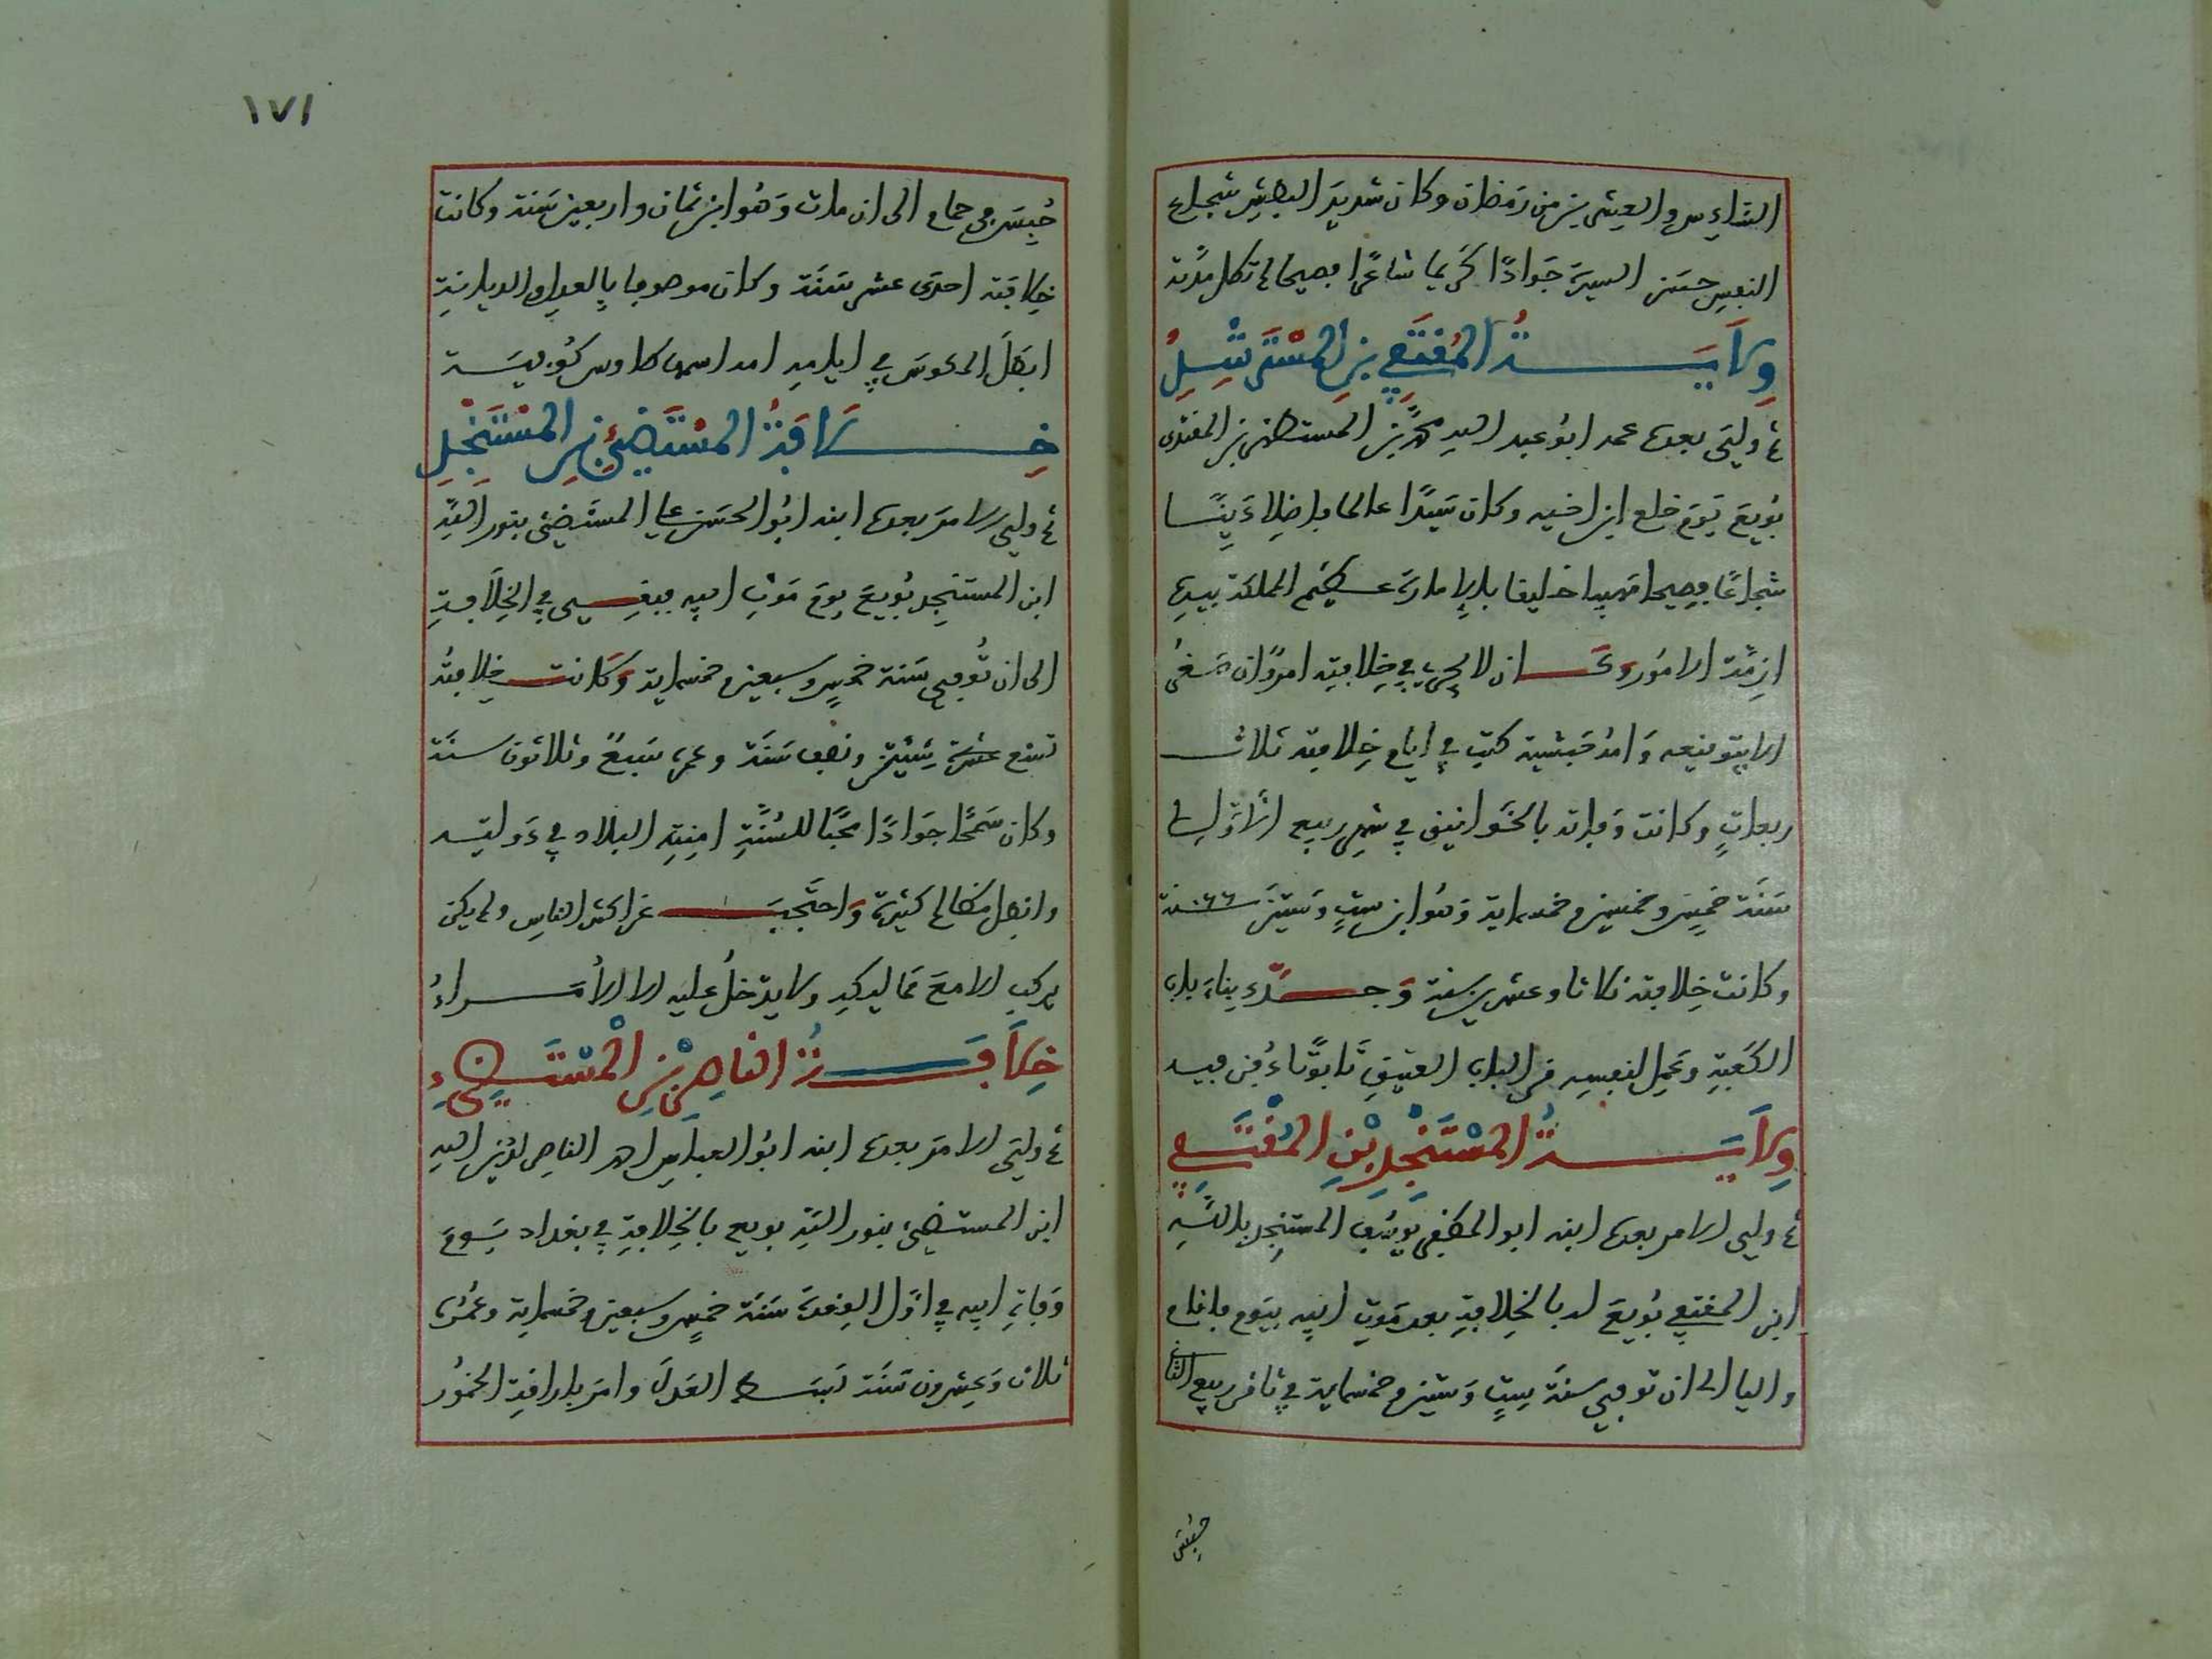 السادس والعشرين من رمضان وكان شديد البطش شجاع
النفس حسن السيرة جوادا كريما شاعرا فصيحا لم تطل مدته
ولاية المقتفي بن المسترشد
ثم ولي بعده عمه ابو عبد الله محمد بن المستظهر بن المقتدى
بويع يوم خلع ابن اخيه وكان سيدا عالما فاضلا دينا
شجاعا فصيحا مهيبا خليقا بالامارة عظيم المملكة بيده
ازمة الامور وكان لا يجري في خلافته امر وان صغر
الا بتوقيعه وامه حبشية كتب في ايام خلافته ثلاث
ربعات وكانت وفاته بالخوانيق في شهر ربيع الاول
سنة خمس وخمسين وخمسماية وهو ابن ست وستين سنة ٦٦
وكانت خلافته ثلاثا وعشرين سنة وجدد بناء باب
الكعبة وعمل لنفسه من الباب العتيق تابوتا دفن فيه
ولاية المستنجد بن المقتفي
ثم ولي الامر بعده ابنه ابو المظفر يوسف المستنجد بالله
ابن المقتفي بويع له بالخلافة بعد موت ابيه بيوم فاقام
واليا الى ان توفي سنة ست وستين وخمسماية في ثامن ربيع الثاني
حبس
١٧١
حبس في حمام الى ان مات وهو ابن ثمان واربعين سنة وكانت
خلافته احدى عشر سنة وكان موصوفا بالعدل والديانة
ابطل المكوس في ايامه امه اسمها طاوس كوفيسة
خلافة المستضيئ بن المستنجد
ثم ولي الامر بعده ابنه ابو الحسن علي المستضيئ بنور الله
ابن المستنجد بويع يوم موت ابيه فبقي في الخلافة
الى ان توفي سنة خمس وسبعين وخمسماية وكانت خلافته
تسع عشرة سنين ونصف سنة وعمره سبع وثلاثون سنة
وكان سمحا جوادا محبا للسنة امنت البلاد في دولته
وابطل مظالم كثيرة واحتجب عن اكثر الناس ولم يكن
يركب الا مع مماليكه ولا يدخل عليه الا الامراء
خلافة الناصر بن المستضيء
ثم ولي الامر بعده ابنه ابو العباس احمد الناصر لدين الله
ابن المستضيئ بنور الله بويع بالخلافة في بغداد يوم
وفاة ابيه في اول القعدة سنة خمس وسبعين وخمسماية وعمره
ثلاث وعشرون سنة بسط العدل وامر باراقة الخمور